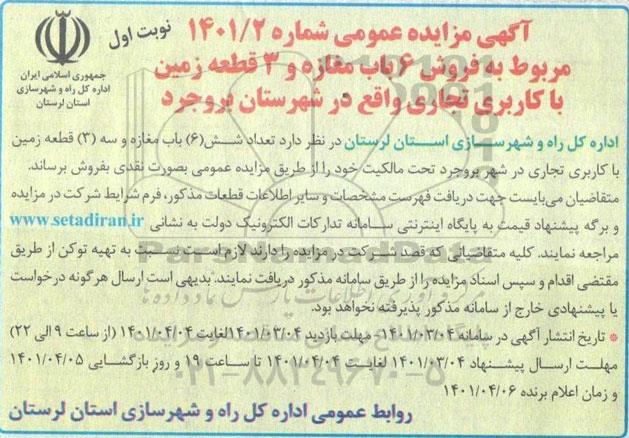 آگهی مزایده عمومی شماره ۱۴۰۱/۲
نوبت اول
مربوط به فروش ۶ باب مغازه و ۳ قطعه زمین
با کاربری تجاری واقع در شهرستان بروجرد
جمهوری اسلامی ایران
اداره کل راه و شهرسازی
استان لرستان
اداره کل راه و شهرسازی استان لرستان در نظر دارد تعداد شش(۶) باب مغازه و سه (۳) قطعه زمین
با کاربری تجاری در شهر بروجرد تحت مالکیت خود را از طریق مزایده عمومی بصورت نقدی بفروش برساند.
متقاضیان می‌بایست جهت دریافت فهرست مشخصات و سایر اطلاعات قطعات مذکور، فرم شرایط شرکت در مزایده
و برگه پیشنهاد قیمت به پایگاه اینترنتی سامانه تدارکات الکترونیک دولت به نشانی www.setadiran.ir
مراجعه نمایند. کلیه متقاضیانی که قصد شرکت در مزایده را دارند لازم است نسبت به تهیه توکن از طریق
مقتضی اقدام و سپس اسناد مزایده را از طریق سامانه مذکور دریافت نمایند. بدیهی است ارسال هرگونه درخواست
یا پیشنهادی خارج از سامانه مذکور پذیرفته نخواهد بود.
* تاریخ انتشار آگهی در سامانه ۱۴۰۱/۰۳/۰۴- مهلت بازدید ۱۴۰۱/۰۳/۰۴ لغایت ۱۴۰۱/۰۴/۰۴ (از ساعت ۹ الی ۲۲)
مهلت ارسال پیشنهاد ۱۴۰۱/۰۳/۰۴ لغایت ۱۴۰۱/۰۴/۰۴ تا ساعت ۱۹ و روز بازگشایی ۱۴۰۱/۰۴/۰۵
و زمان اعلام برنده ۱۴۰۱/۰۴/۰۶
روابط عمومی اداره کل راه و شهرسازی استان لرستان
ParsNamadData
۰۲۱-۸۸۳۴۹۶۷۰-۵